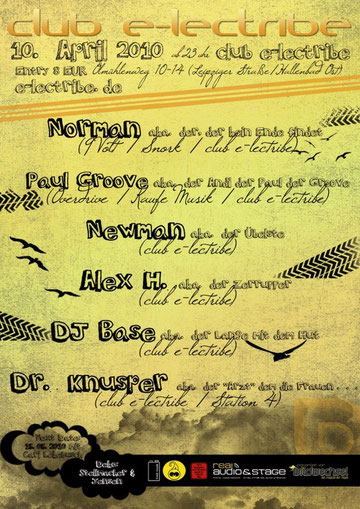 club e-lectribe
10. April 2010 ab 23 Uhr club e-lectribe
Entry 8 EUR Ölmühlenweg 10-14 (Leipziger Straße/Hallenbad Ost)
e-lectribe.de
Norman aka. der, der kein Ende findet
(9Volt / Snork / club e-lectribe)
Paul Groove aka. der Andi der Paul der Groove
(Overdrive / Raufe Musik / club e-lectribe)
Newman aka. der Übelste
(club e-lectribe)
Alex H. aka. der Zerrupfer
(club e-lectribe)
DJ Base aka. der Lange mit dem Hut
(club e-lectribe)
Dr. Knusper aka. der "Arzt" dem die Frauen . . .
(club e-lectribe / Station 4)
Next Date:
Deko:
real
audio&stage